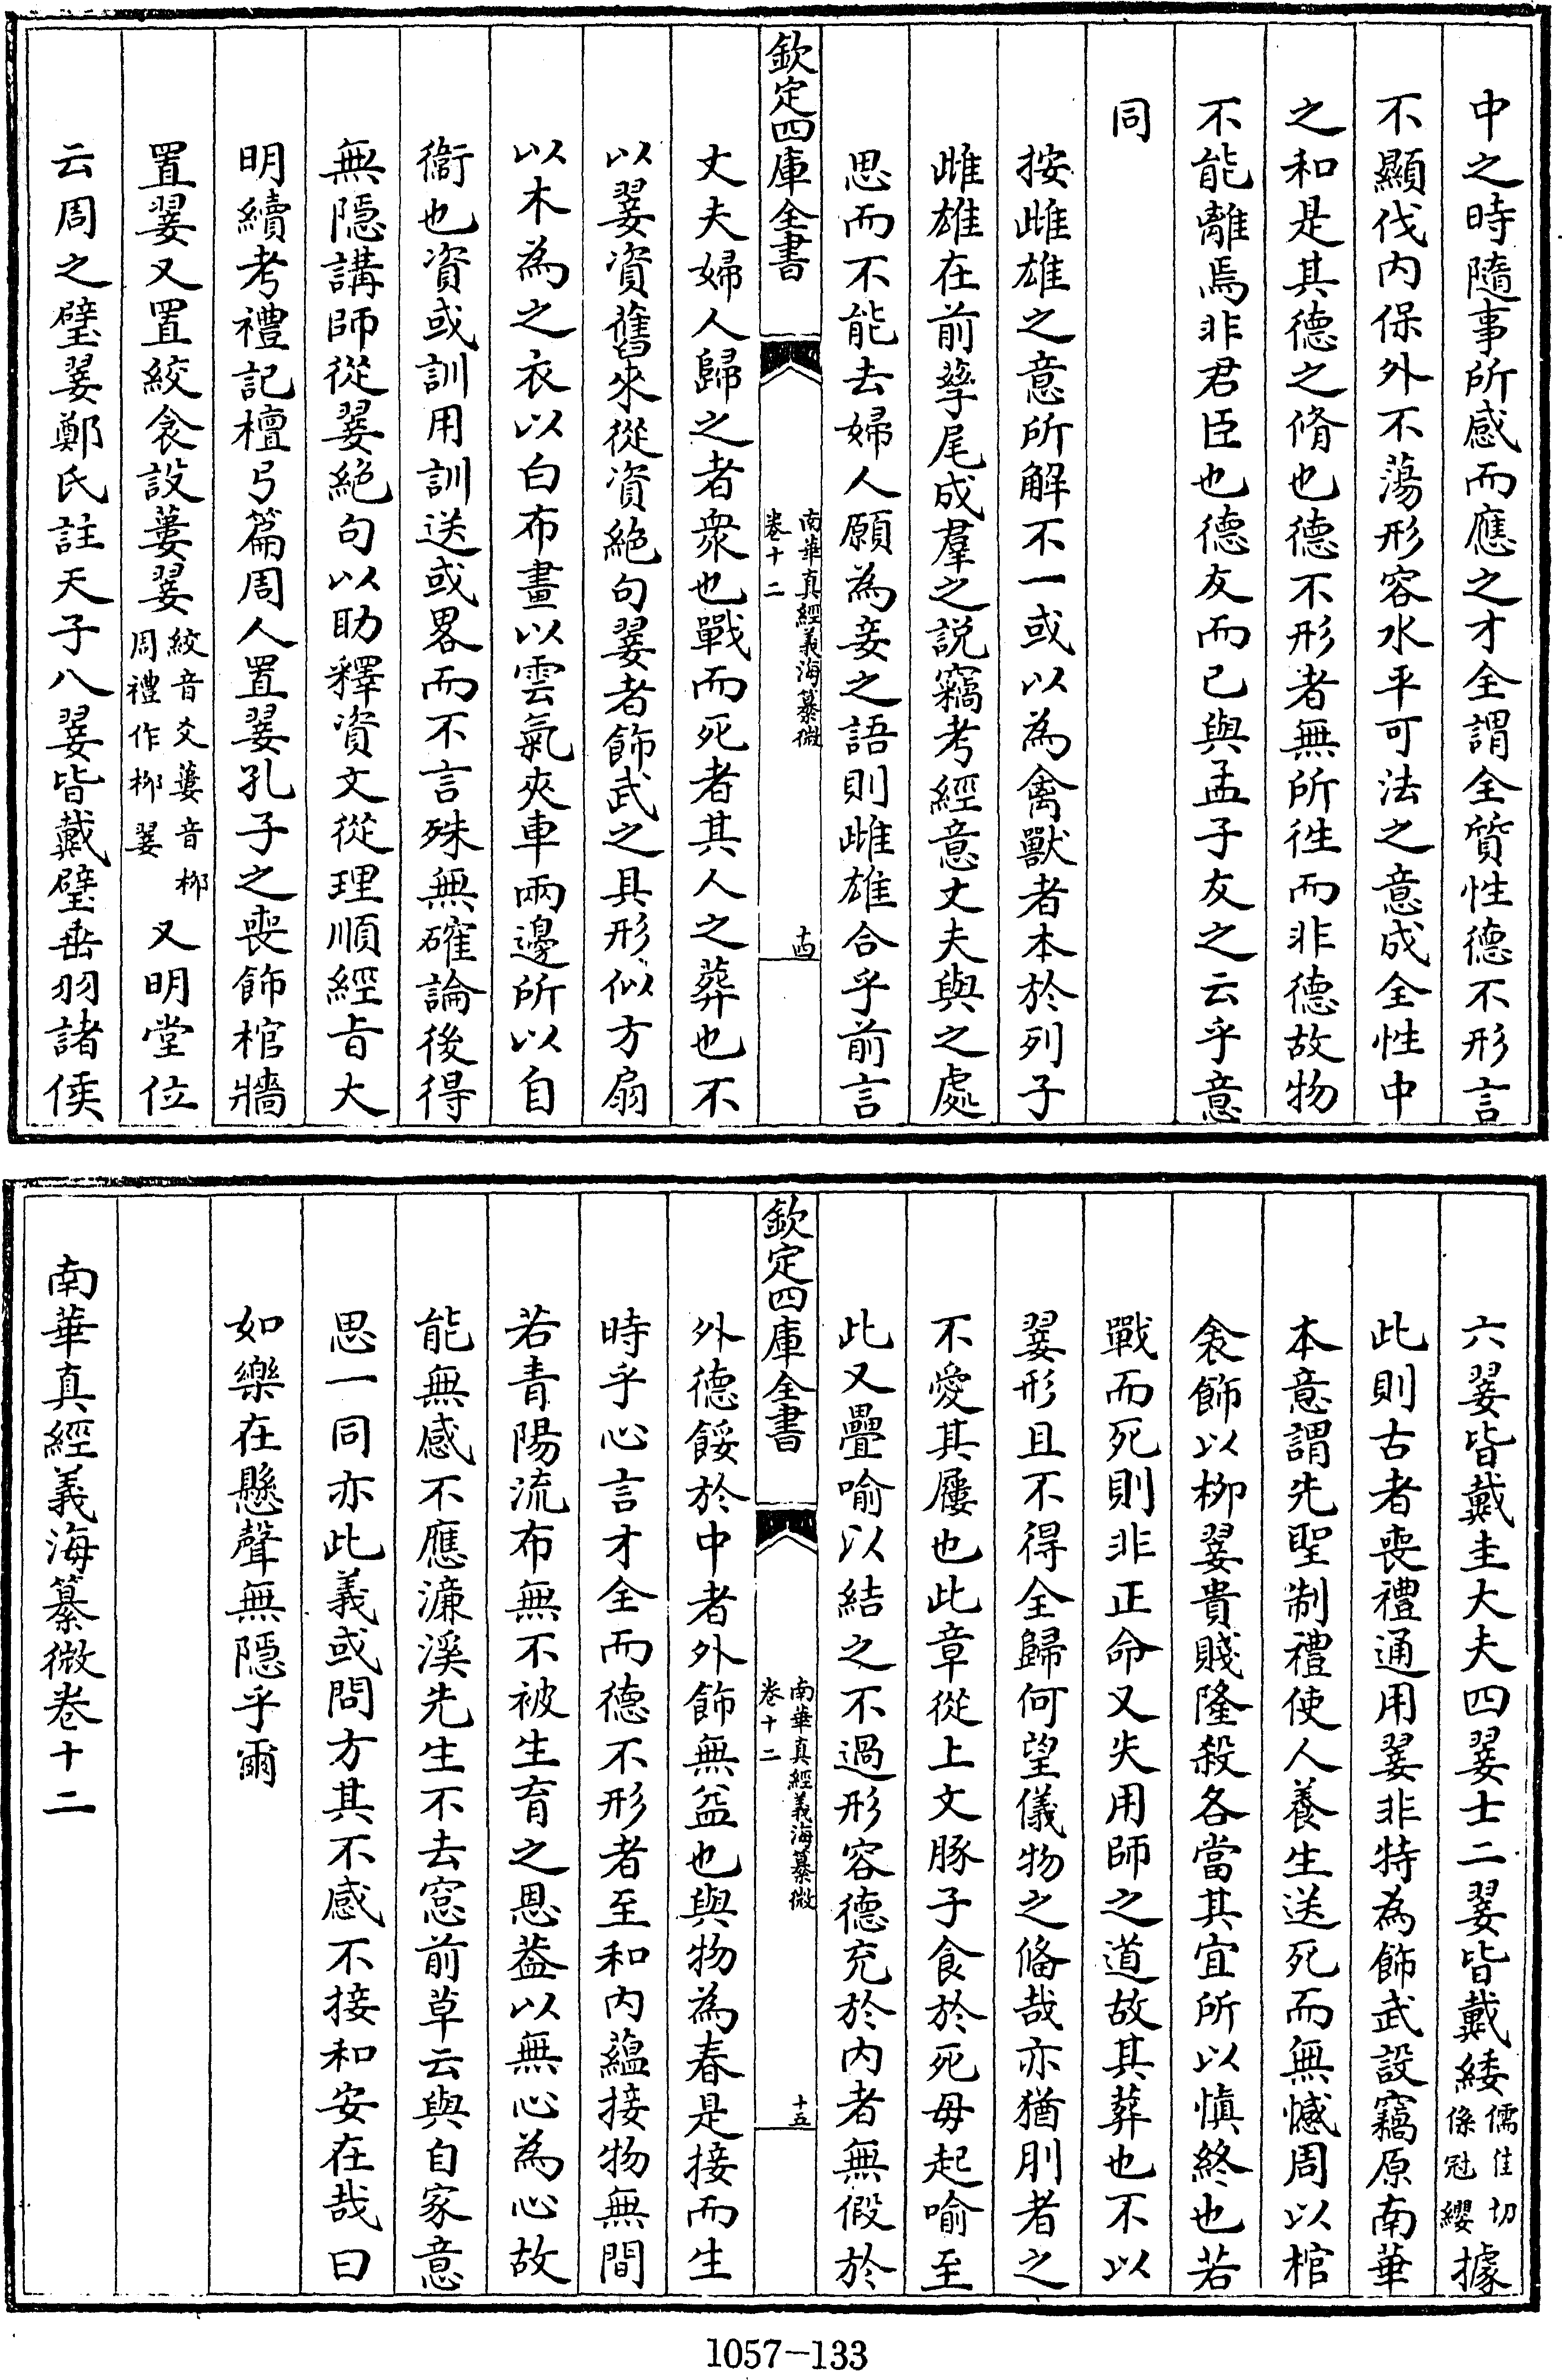 中之時隨事所感而應之才全謂全質性德不形言
不顯伐内保外不蕩形容水平可法之意成全性中
之和是其德之脩也德不形者無所徃而非德故物
不能離焉非君臣也德友而已與孟子友之云乎意
同
按雌雄之意所解不一或以為禽獸者本於列子
雌雄在前孳尾成羣之説竊考經意丈夫與之處
思而不能去婦人願為妾之語則雌雄合乎前言
欽定四庫全書
南華真經義海纂微
卷十二
十四
丈夫婦人歸之者衆也戰而死者其人之葬也不
以翣資舊來從資絶句翣者飾武之具形似方扇
以木為之衣以白布畫以雲氣夾車兩邊所以自
衞也資或訓用訓送或畧而不言殊無確論後得
無隠講師從翣絶句以助釋資文從理順經旨大
明續考禮記檀弓篇周人置翣孔子之喪飾棺牆
置翣又置絞衾設蔞翣絞音爻蔞音栁周禮作栁翣又明堂位
云周之璧翣鄭氏註天子八翣皆戴璧垂羽諸侯
六翣皆戴圭大夫四翣士二翣皆戴緌儒佳切絛冠纓據
此則古者喪禮通用翣非特為飾武設竊原南華
本意謂先聖制禮使人養生送死而無憾周以棺
衾飾以栁翣貴賤隆殺各當其宜所以慎終也若
戰而死則非正命又失用師之道故其葬也不以
翣形且不得全歸何望儀物之備哉亦猶刖者之
不愛其屨也此章從上文豚子食於死母起喻至
此又疊喻以結之不過形容德充於内者無假於
欽定四庫全書
南華真經義海纂微
卷十二
十五
外德餒於中者外飾無益也與物為春是接而生
時乎心言才全而德不形者至和内藴接物無間
若青陽流布無不被生育之恩葢以無心為心故
能無感不應濂溪先生不去窓前草云與自家意
思一同亦此義或問方其不感不接和安在哉曰
如樂在懸聲無隠乎爾
南華真經義海纂微卷十二
1057-133